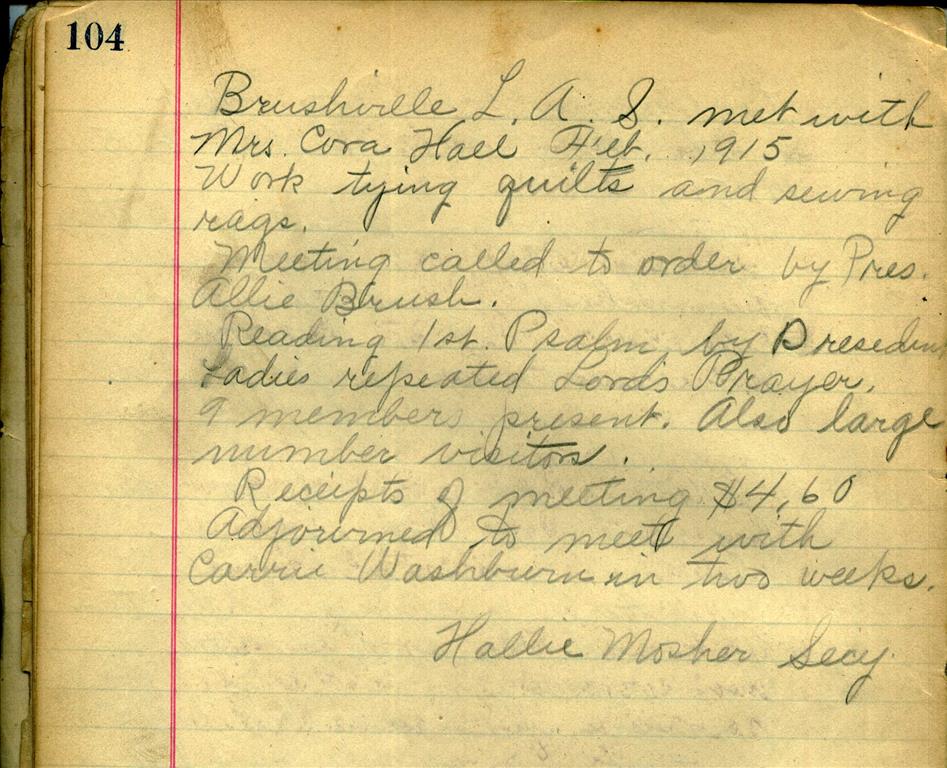 104
Brushville L. A. S. met with
Mrs. Cora Hall Feb. , 1915
Work tying quilts and sewing
rags.
Meeting called to order by Pres.
Allie Brush.
Reading 1st. Psalm by Presedin
Ladies repeated Lords Prayer.
9 members present. Also large
number visitors.
Receipts of meeting $4,60
Adjourned to meet with
Carrie Washburn in two weeks.
Hallie Mosher Secy.